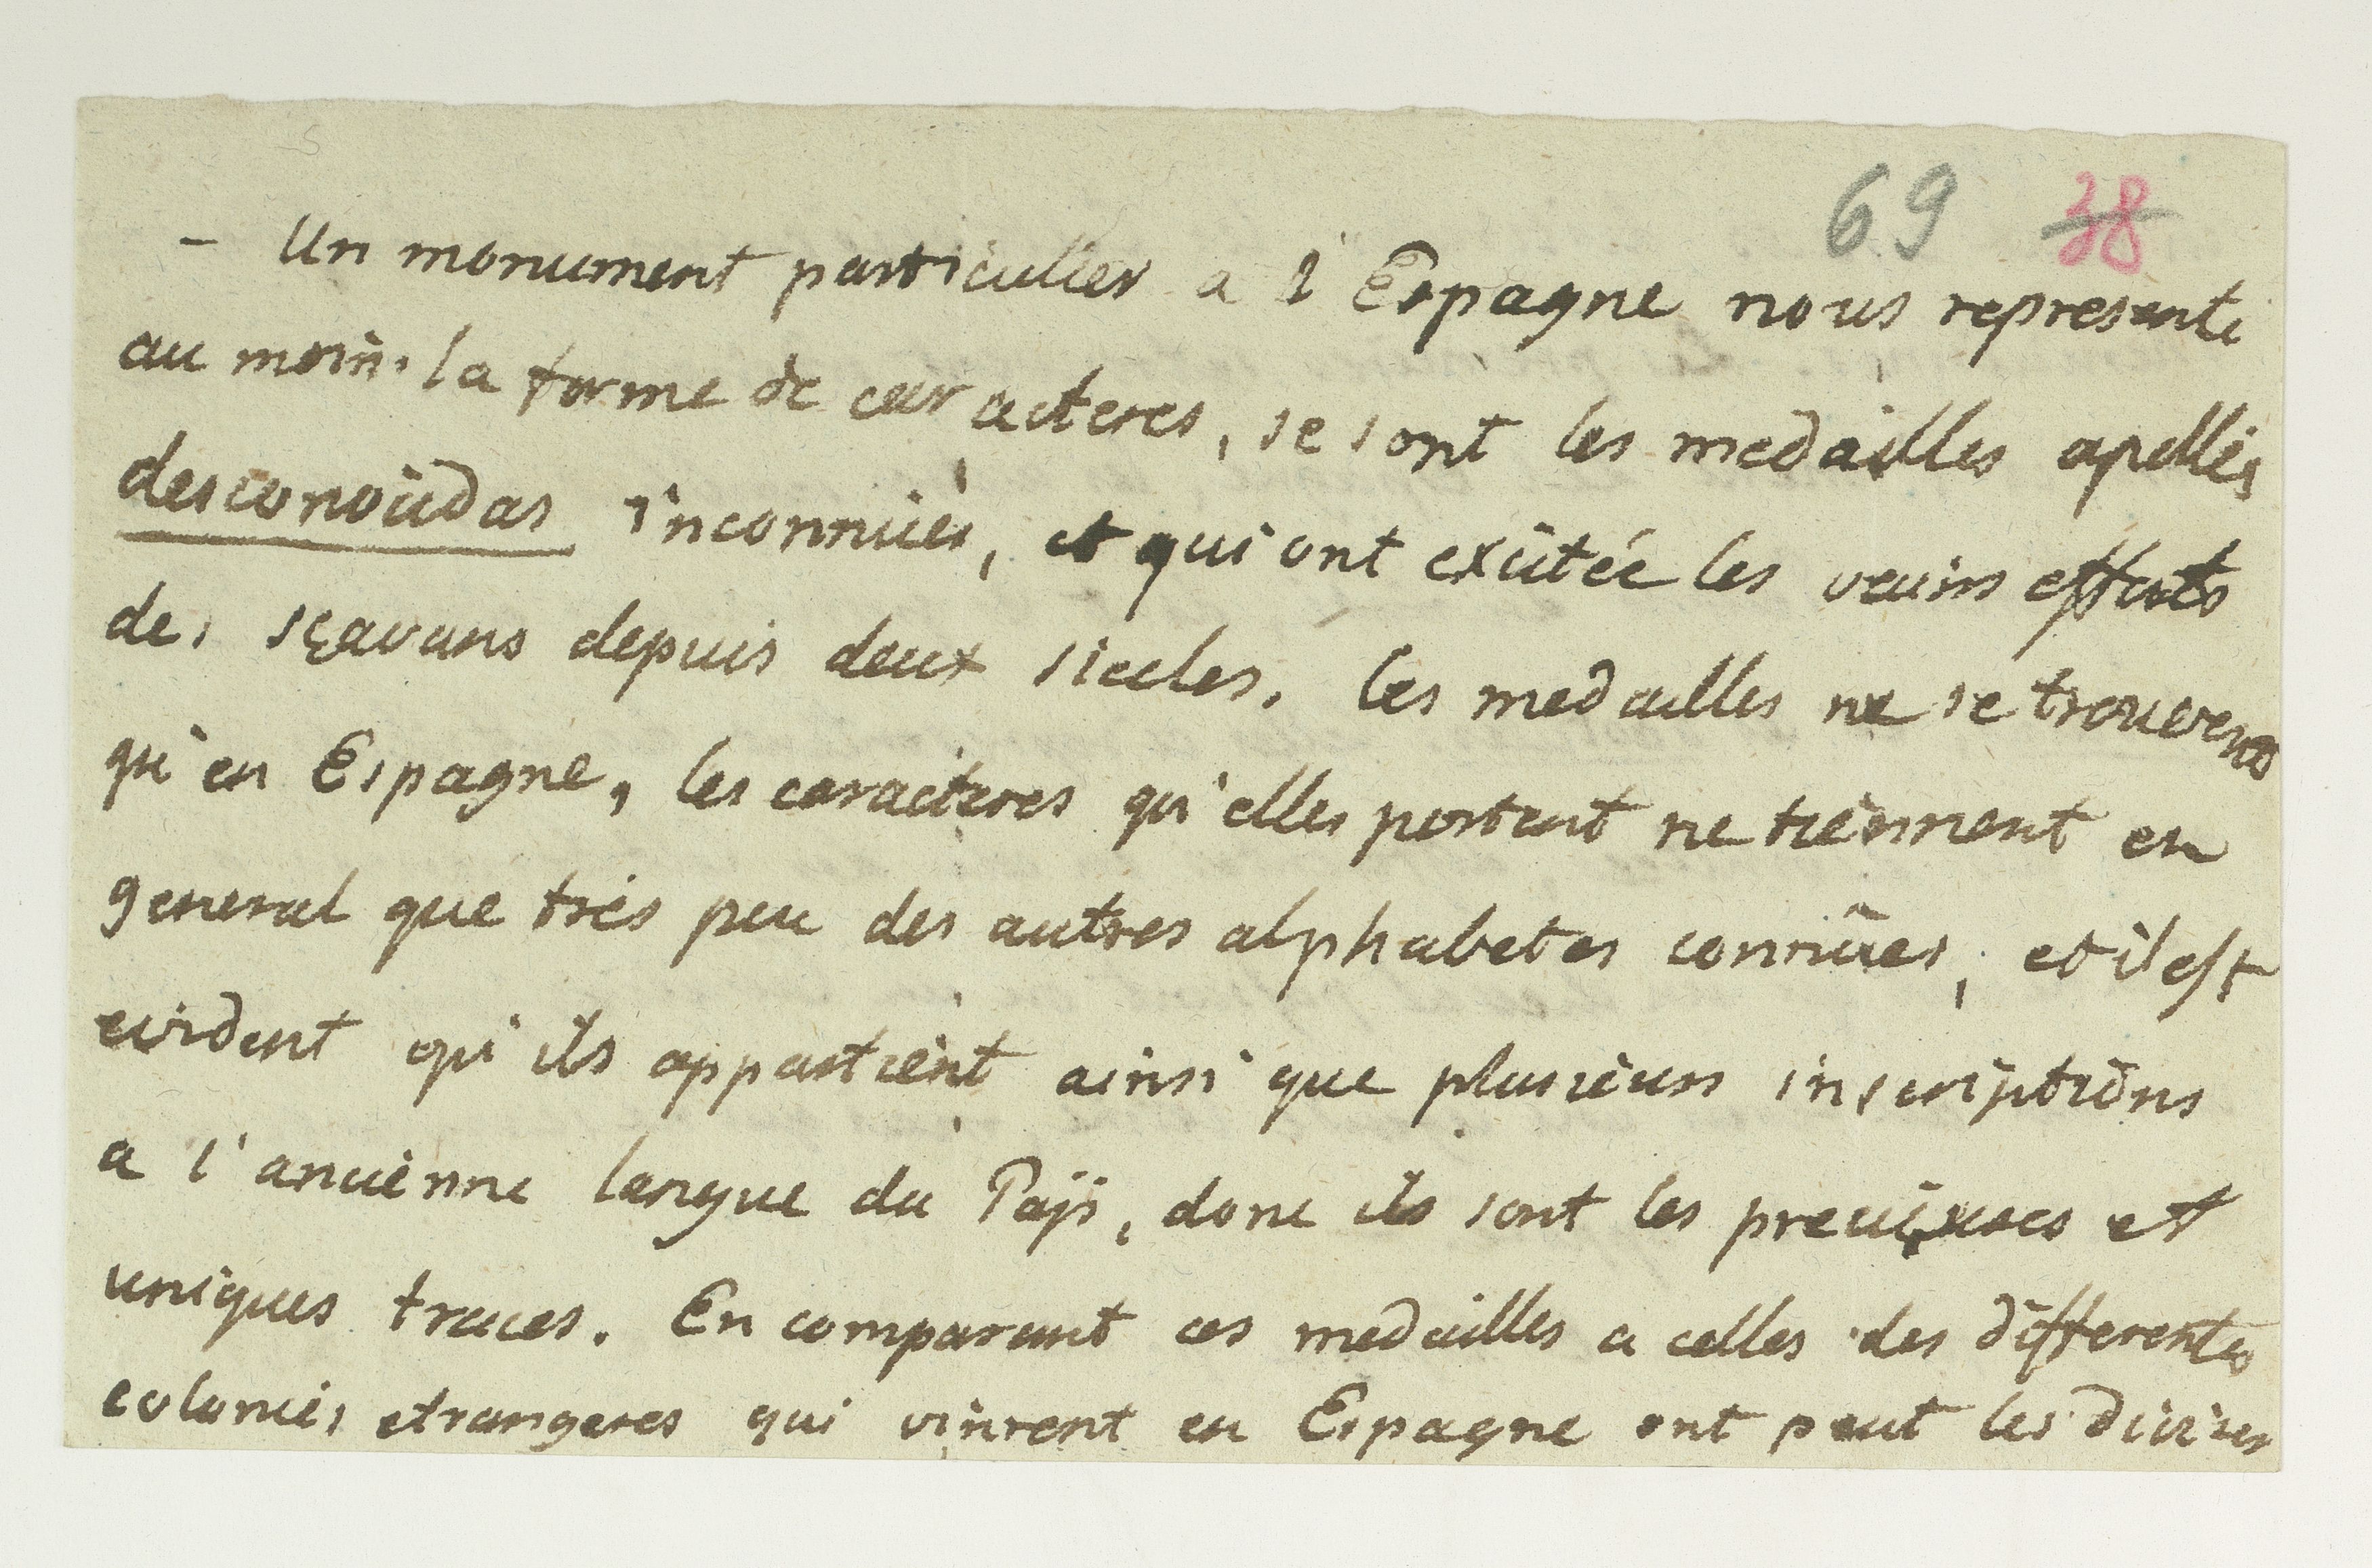 69 38
- Un monument particulier a l'Espagne nous represente
au moins la forme de caracteres, se sont les medailles apellés
desconoüdas inconnües, et qui ont exütée les vains efforts
des sçavans depuis deux siecles. les medailles ne se trouvent
qu'en Espagne, les caracteres qu'elles portent ne tiennent en
general que trés peu des autres alphabetes connües, et il est
evident qu'ils appartient ainsi que plusieurs inscriptions
a l'ancienne langue du Païs, donc ils sont les precieuses et
uniques traces. En comparant ces medailles a celles des differentes
colonies etrangeres qui vinrent en Espagne ont peut les diviser